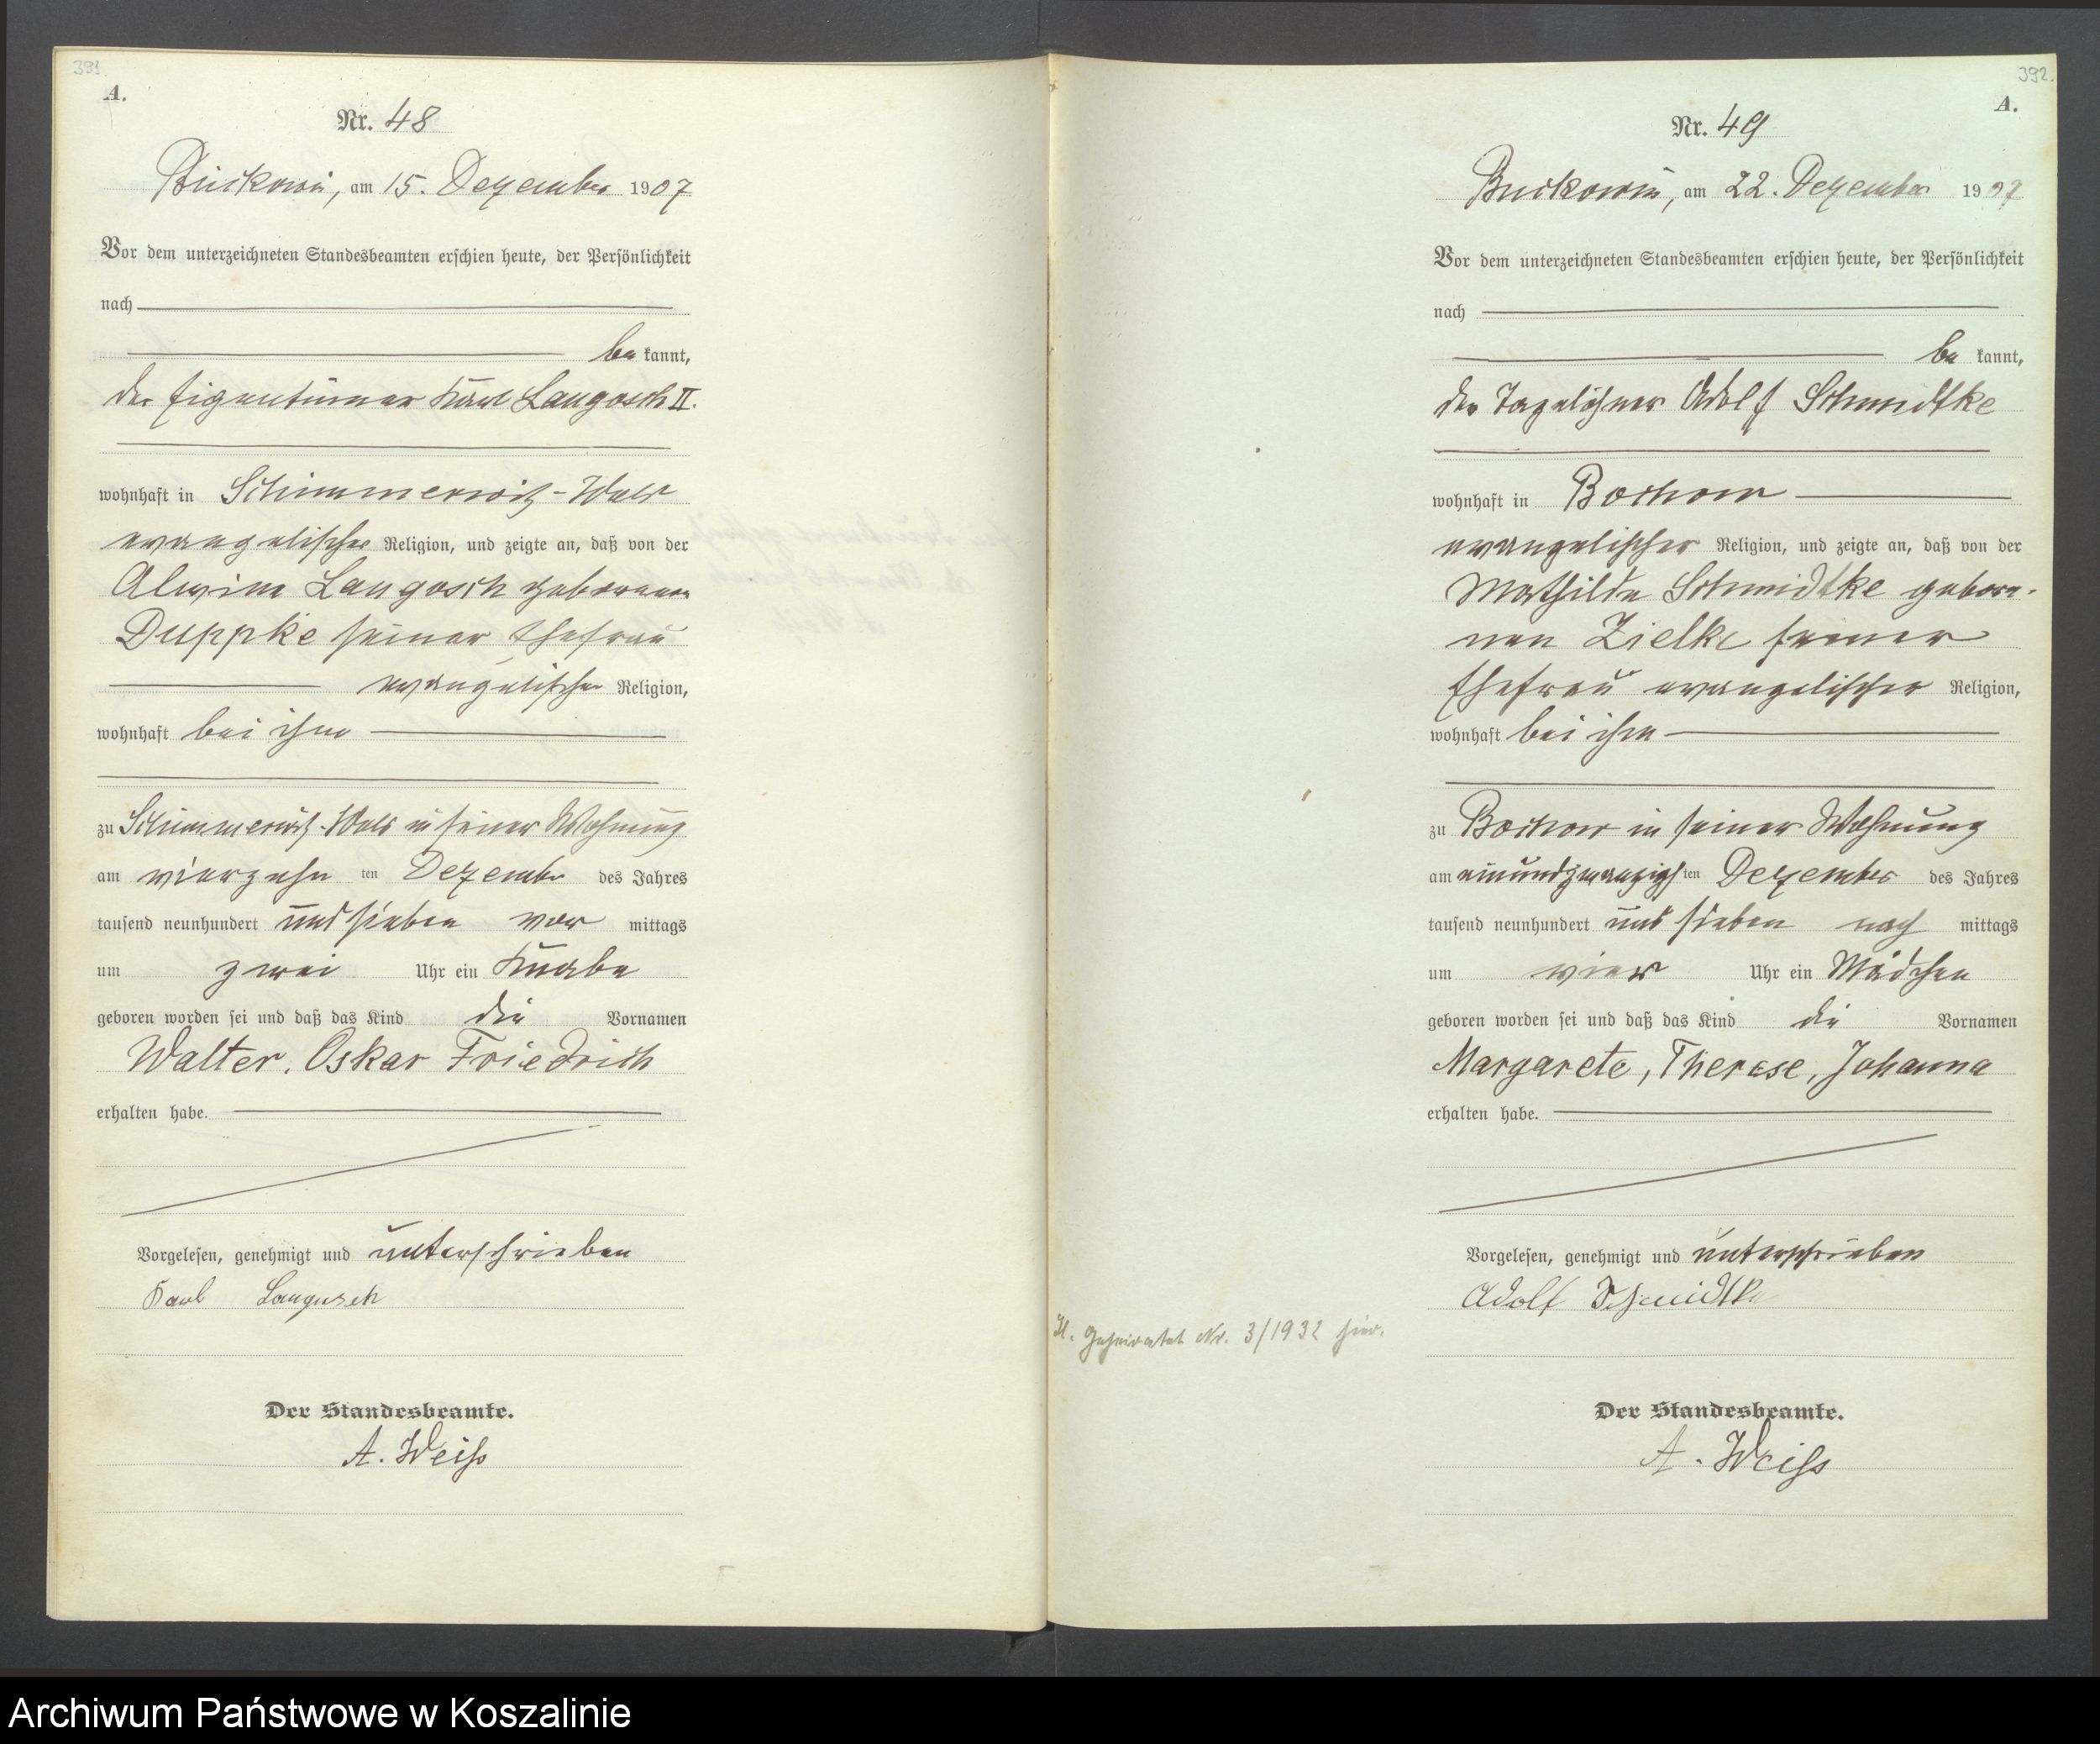 391.
A.
Nr. 48
Buckowin, am 15. Dezember 1907
Vor dem unterzeichneten Standesbeamten erschien heute, der Persönlichkeit
nach
be kannt,
der Eigentümer Karl Langosch II.
wohnhaft in Schimmerwitz-Wald
evangelischer Religion, und zeigte an, daß von der
Alwine Langosch geborenen
Duppke seiner Ehefrau
evangelischer Religion,
wohnhaft bei ihm
zu Schimmerwitz-Wald in seiner Wohnung
am vierzehn ten Dezember des Jahres
tausend neunhundert und sieben vor mittags
um zwei Uhr ein Knabe
geboren worden sei und daß das Kind die Vornamen
Walter, Oskar Friedrich
erhalten habe.
Vorgelesen, genehmigt und unterschrieben
Karl Langosch
Der Standesbeamte.
A. Weiß
392.
A.
Nr. 49
Buckowin, am 22. Dezember 1907
Vor dem unterzeichneten Standesbeamten erschien heute, der Persönlichkeit
nach
be kannt,
der Tagelöhner Adolf Schmidtke
wohnhaft in Bochow
evangelischer Religion, und zeigte an, daß von der
Mathilde Schmidtke gebore-
nen Zielke seiner
Ehefrau evangelischer Religion,
wohnhaft bei ihm
zu Bochow in seiner Wohnung
am einundzwanzigsten Dezember des Jahres
tausend neunhundert und sieben nach mittags
um vier Uhr ein Mädchen
geboren worden sei und daß das Kind die Vornamen
Margarete, Therese, Johanna
erhalten habe.
Vorgelesen, genehmigt und unterschrieben
Adolf Schmidtke
geheiratet Nr. 3/1932 hier.
Der Standesbeamte.
A. Weiß
Archiwum Państwowe w Koszalinie